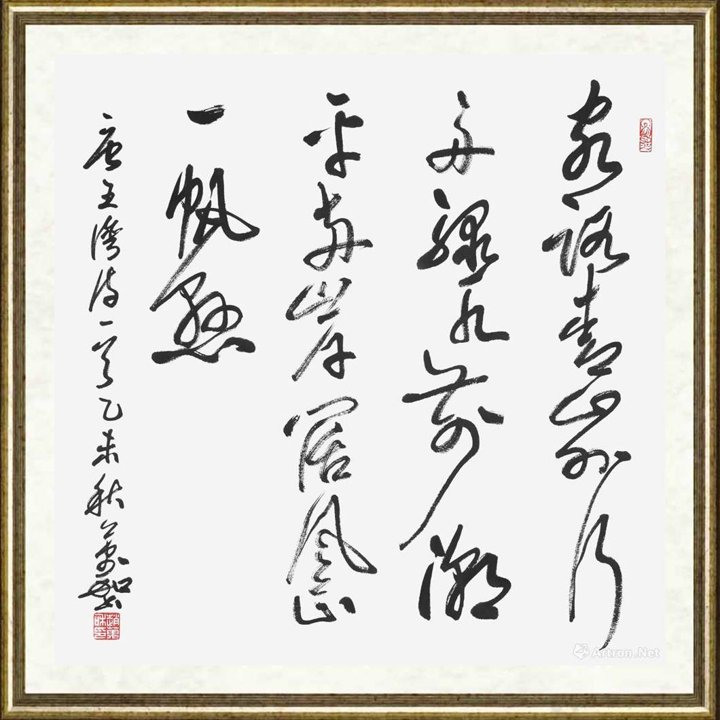 客路青山外行
舟綠水前潮
平兩岸闊風正
一帆懸
唐王灣詩一首乙未秋
Artron.Net